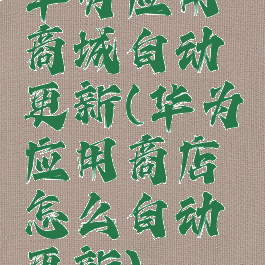 应用
商城自动
更新(华为
应用商店
怎么自动
更新)